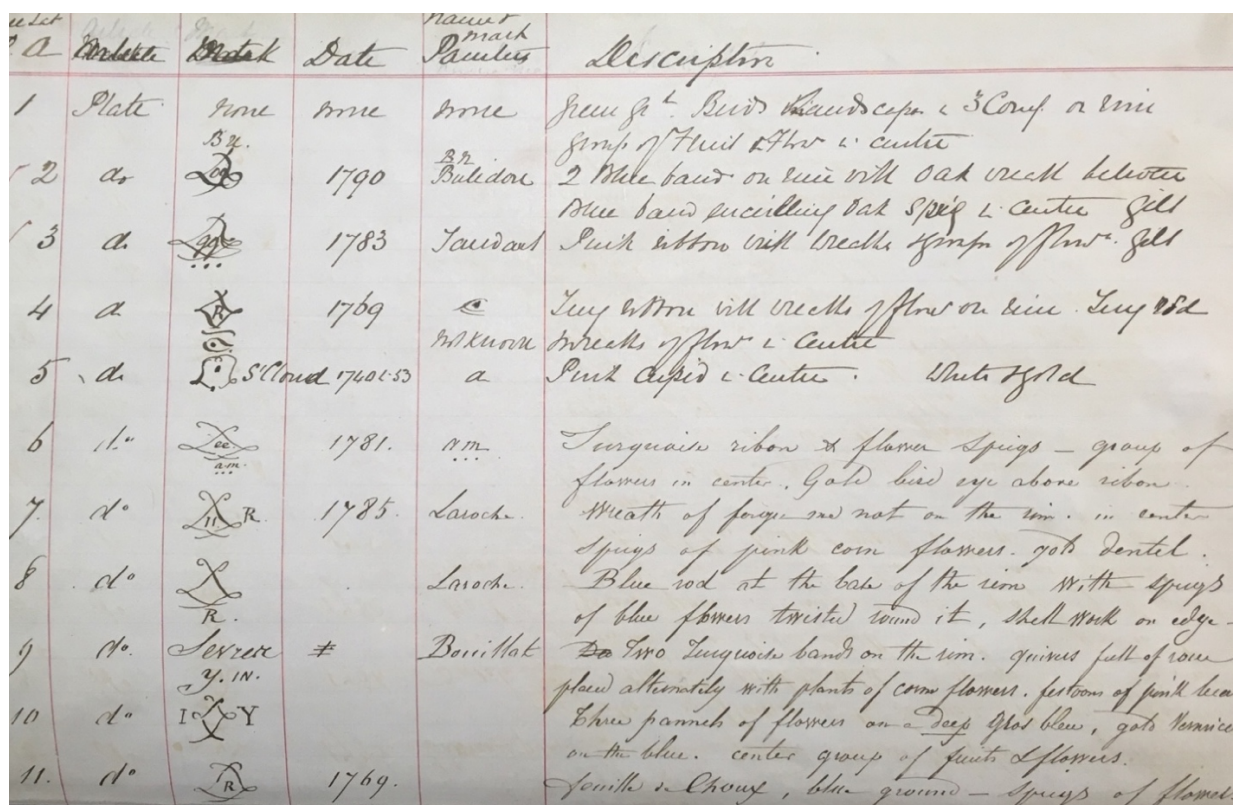 Name &
mark
a Article Mark Date Painters Description
1 Plate none none none Green gd. Birds Landscapes in 3 Comp on rim
Bn. group of Fruit & Flowr in centre
2 do 1790 Bn Bulidon 2 Blue band on rim with Oak wreath between
Blue band encircling Oak Sprig in Centre Gilt
3 d. 1783 Tandart Pink ribbon with wreaths & groups of flowr. Gilt
4 d 1769 ribbon with wreaths of flowr on rim.
unknown wreaths of flowr in Centre
5 d. St Cloud 1740 d Pink Cupid in Centre. White & gold
6 do ee a.m. 1781. a.m. Turquoise ribon & flower sprigs – group of
flowers in center. Gold bird eye above ribon.
7. do R. 1785. Laroche. Wreath of forget me not on the rim. in center
sprigs of pink corn flowers. gold dentel.
8 do R. Laroche. Blue rod at the base of the rim with sprigs
of blue flowers twisted round it, shell work on edge –
9 do. Sevres # Bouillat Two Turquoise bands on the rim. quivers full of roses
Y. IN. placed alternately with plants of corn flowers. festoons of pink
10 do I Y Three pannels of flowers on a deep Gros bleu, gold
on the blue. center group of fruits & flowers.
11. do R 1769. feuille de Choux, blue ground – sprigs of flowers